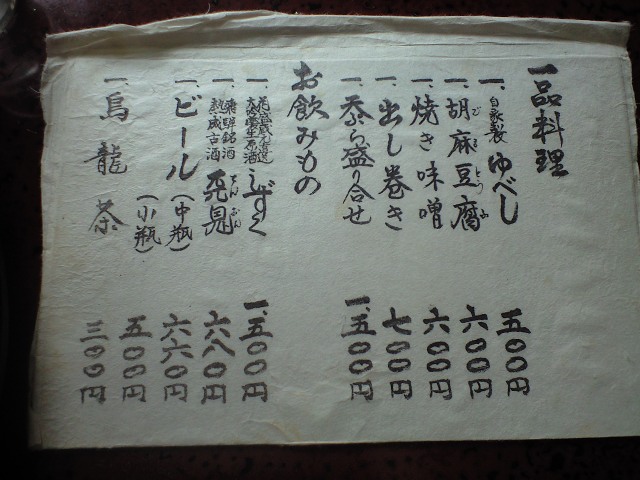 一品料理
一、自家製 ゆべし 五〇〇円
一、胡麻豆腐 六〇〇円
一、焼き味噌 六〇〇円
一、出し巻き 七〇〇円
一、天ぷら盛り合せ 一、五〇〇円
お飲みもの
一、しずく 一、五〇〇円
一、飛騨銘酒 熟成古酒 六八〇円
一、ビール (中瓶) 六六〇円
(小瓶) 五〇〇円
一、烏龍茶 三〇〇円